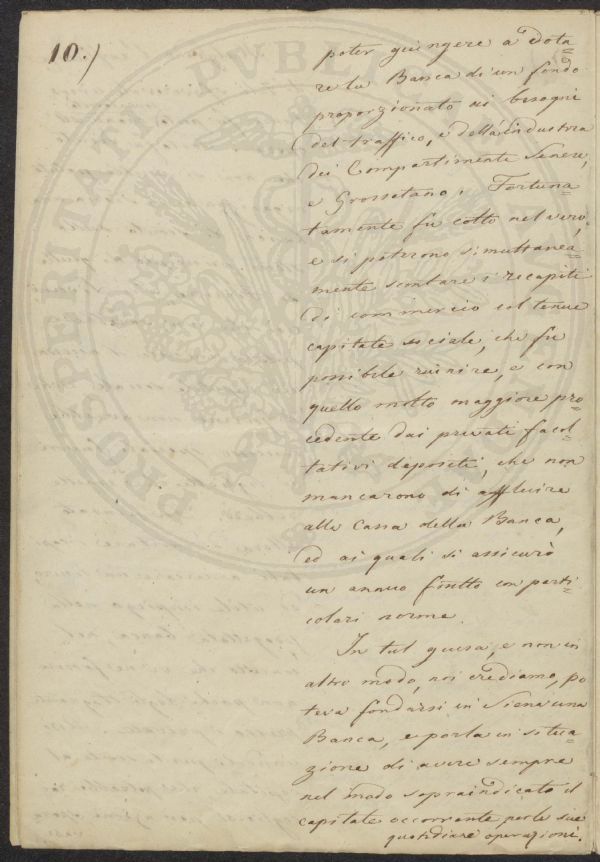 10.)
poter giungere a dota=
re la Banca di un fondo
proporzionato ai bisogni
del traffico, e dell'industria
dei Compartimente Senese,
e Grossetano. Fortuna=
tamente fù colto nel vero,
e si poterono simultanea=
mente scontare i recapiti
di commercio col tenue
capitale sociale, che fù
possibile riunire, e con
quello molto maggiore pro=
cedente dai privati facol=
tativi depositi, che non
mancarono di affluire
alla Cassa della Banca,
ed ai quali si assicurò
un annuo frutto con parti=
colari norme.
In tal guisa, e non in
altro modo, noi crediamo, po
teva fondarsi in Siena una
Banca, e porla in situa=
zione di avere sempre
nel modo sopraindicato il
capitale occorrente per le sue
quotidiane operazioni.
PROSPERITATI PUBLICAE